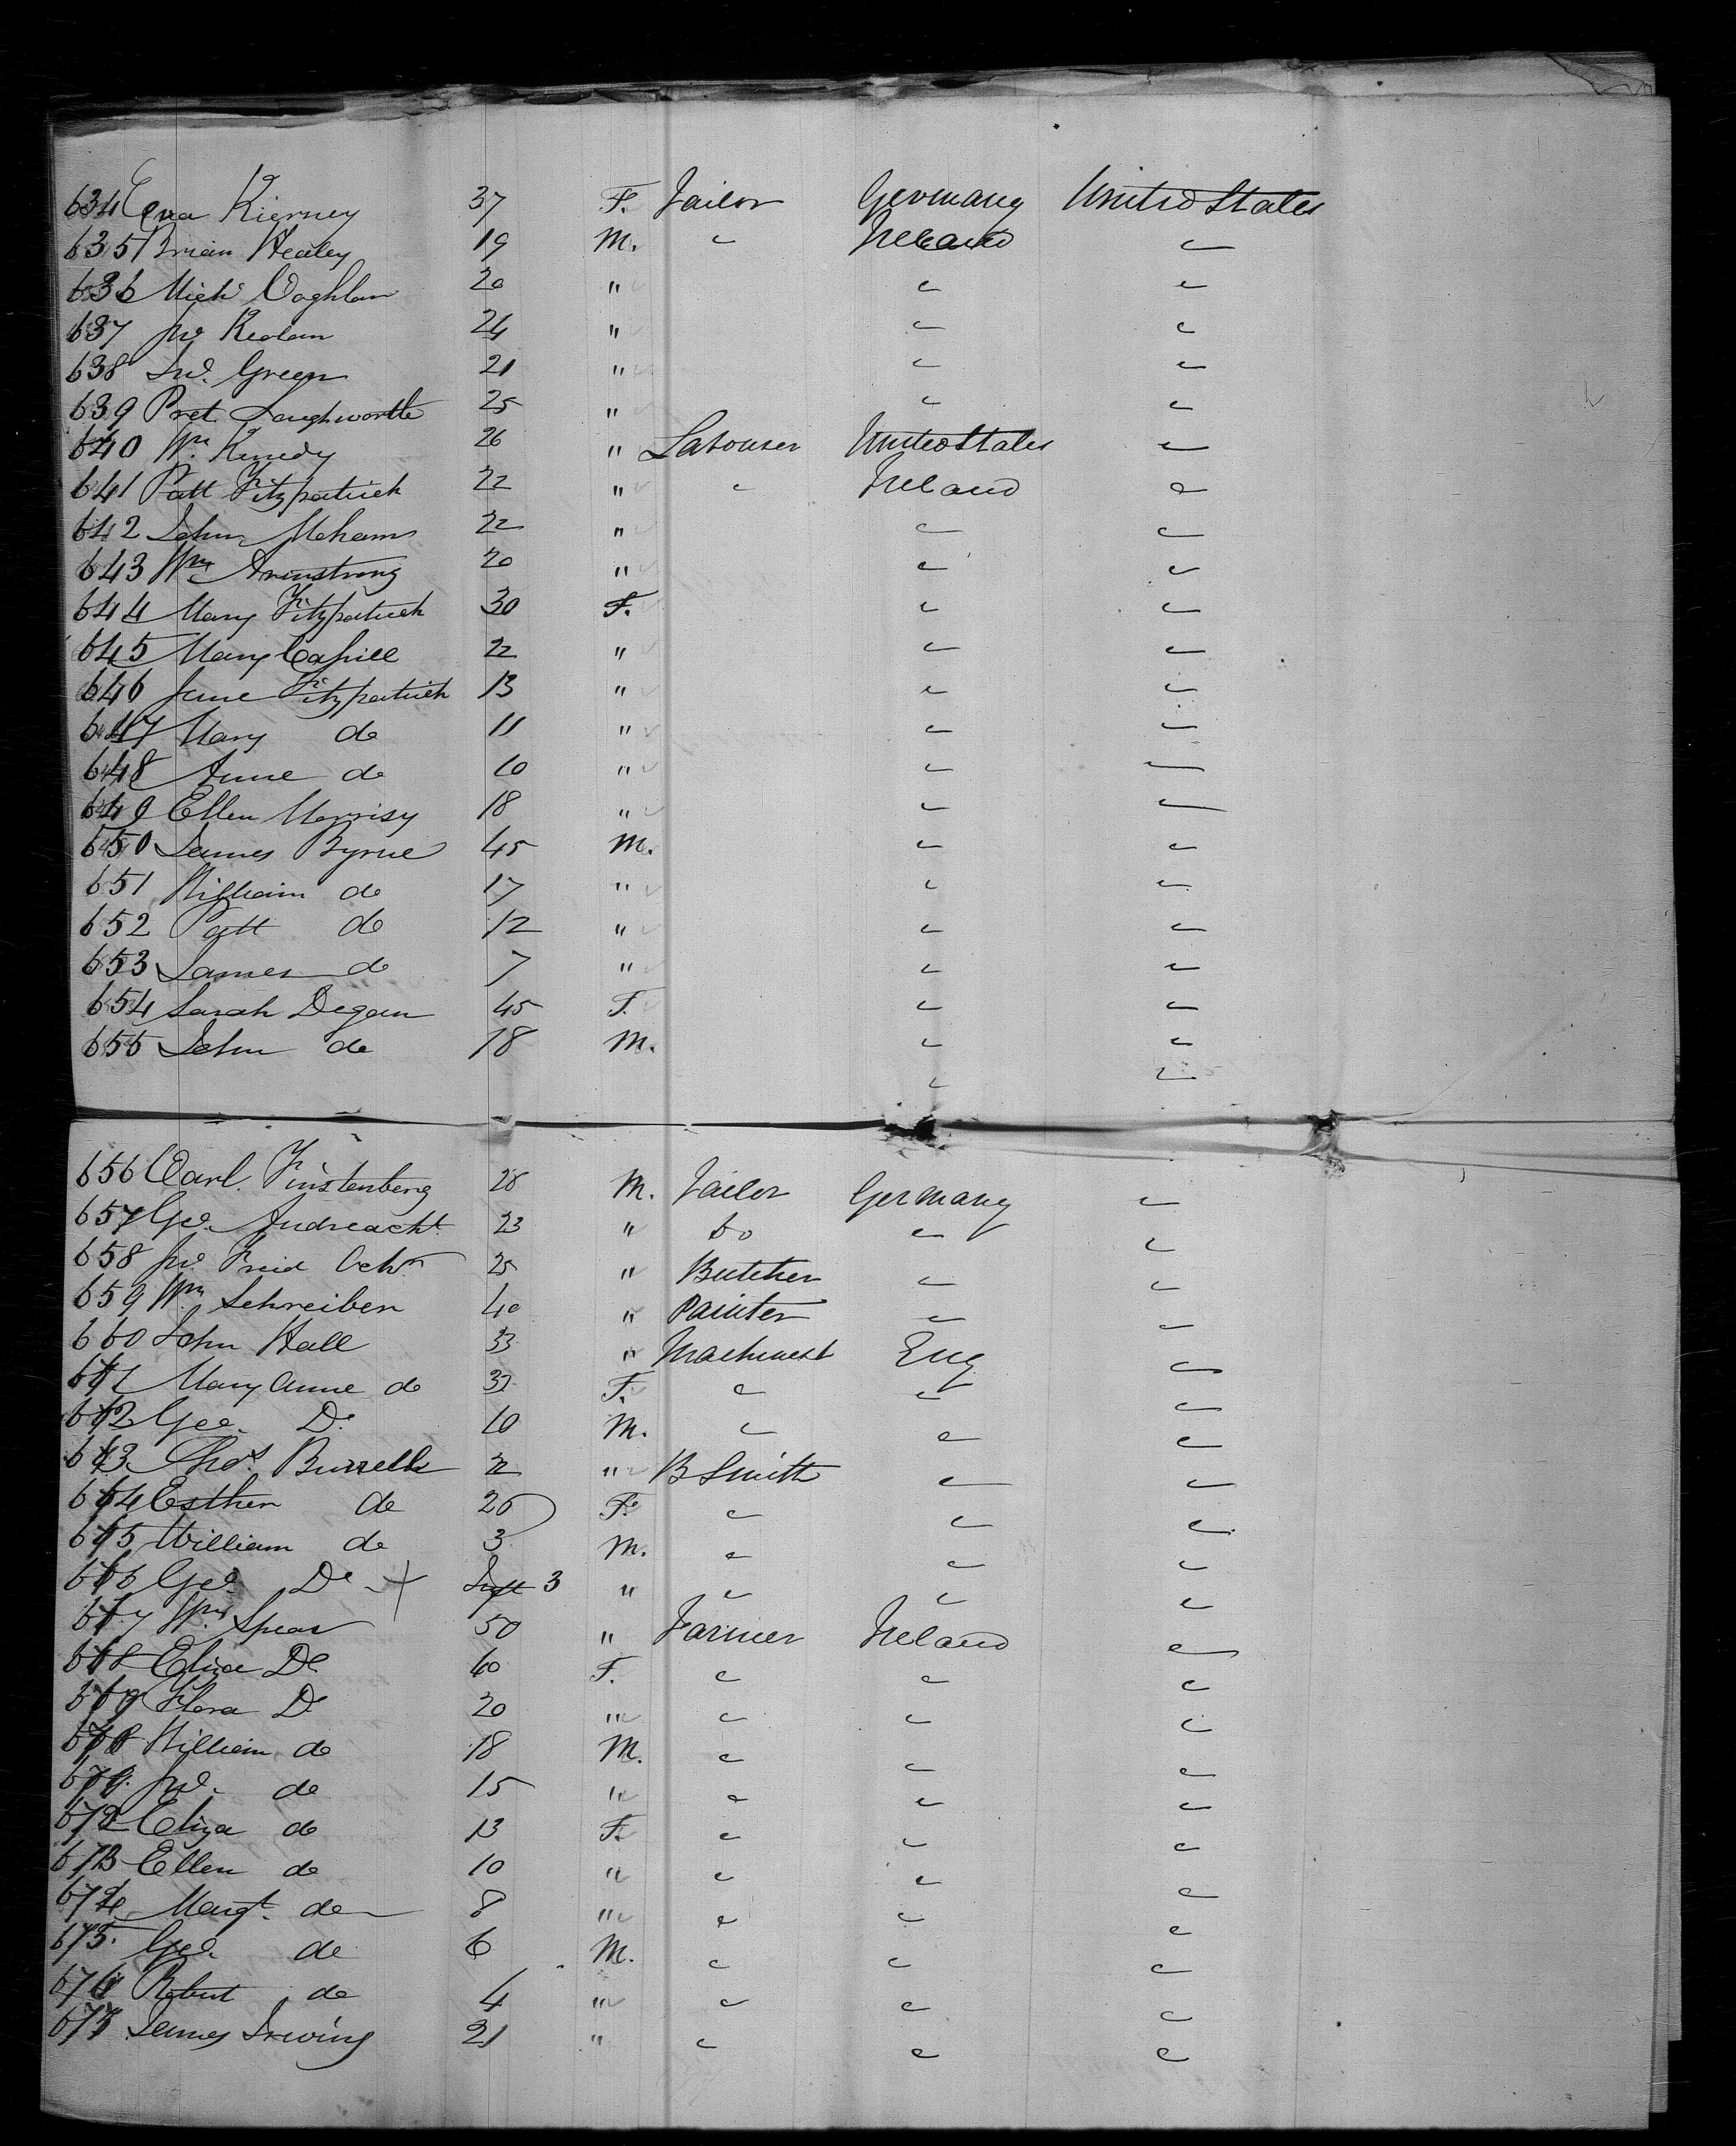 634 Eva Kierney 37 F. Tailor Germany United States
635 Brian Healey 19 M. " Ireland "
636 Mich Coghlan 20 " " "
637 Jno Keolan 24 " " "
638 Jno. Green 21 " " "
639 Pret. Loughworth 25 " " "
640 Wm Kenedy 26 " Labourer United States "
641 Patt Fitzpatrick 22 " " Ireland "
642 John Meham 22 " " "
643 Wm Armstrong 20 " " "
644 Mary Fitzpatrick 30 F. " "
645 Mary Cahill 22 " " "
646 Jane Fitzpatrick 13 " " "
647 Mary do 11 " " "
648 Anne do 10 " " "
649 Ellen Morrisy 18 " " "
650 James Byrne 45 M. " "
651 William do 17 " " "
652 Patt do 12 " " "
653 James do 7 " " "
654 Sarah Degan 45 F. " "
655 John do 18 M. " "
" "
656 Carl Finstenberg 28 M. Tailor Germany "
657 Geo. Andreacht 23 " do " "
658 Jno Freid 25 " Butcher " "
659 Wm Schreiber 40 " Painter " "
660 John Hall 33 " Machinest Eng "
661 Mary Anne do 32 F. " " "
662 Geo. Do 10 M. " " "
663 Thos Burrell 32 " B Smith " "
664 Esther do 26 F. " " "
665 William do 3 M. " " "
666 Geo. Do + Inft 3 " " " "
667 Wm Spear 50 " Farmer Ireland "
668 Eliza Do 40 F. " " "
669 Flora Do 20 " " " "
670 William do 18 M. " " "
671 Jno. do 15 " " " "
672 Eliza do 13 F. " " "
673 Ellen do 10 " " " "
674 Margt. do 8 " " " "
675 Geo. do 6 M. " " "
676 Robert do 4 " " " "
677 James Irwing 21 " " " "